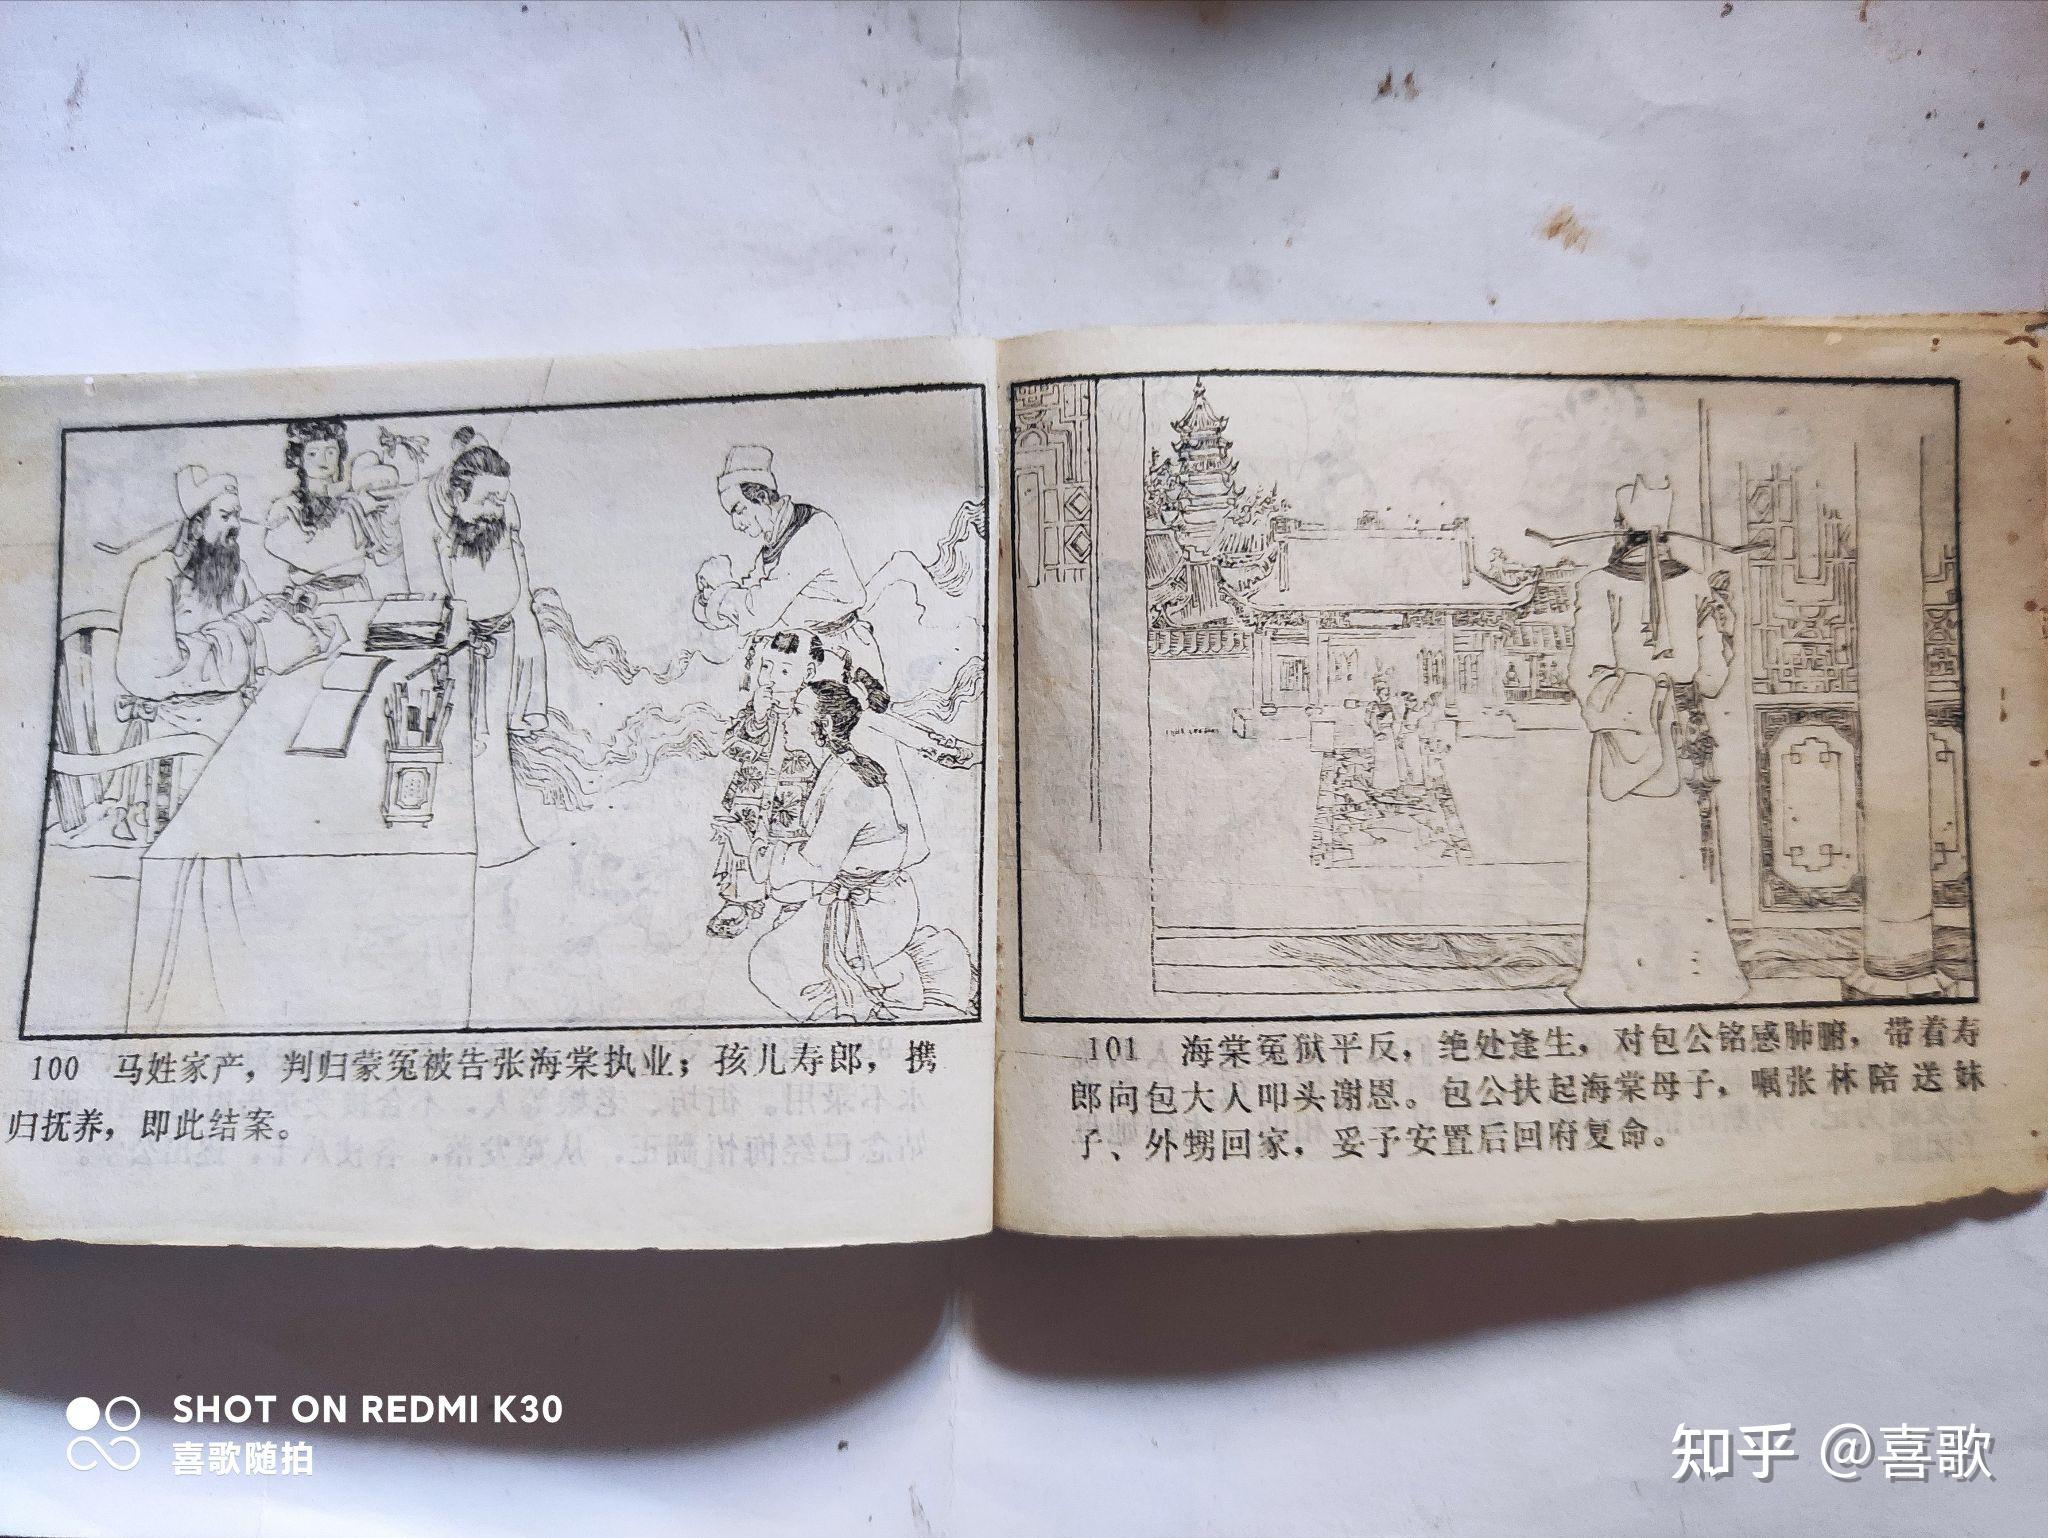 100 马姓家产，判归蒙冤被告张海棠执业；孩儿寿郎，携
归抚养，即此结案。
101 海棠冤狱平反，绝处逢生，对包公铭感肺腑，带着寿
郎向包大人叩头谢恩。包公扶起海棠母子，嘱张林陪送妹
子、外甥回家，妥予安置后回府复命。
SHOT ON REDMI K30
喜歌随拍
知乎 @喜歌